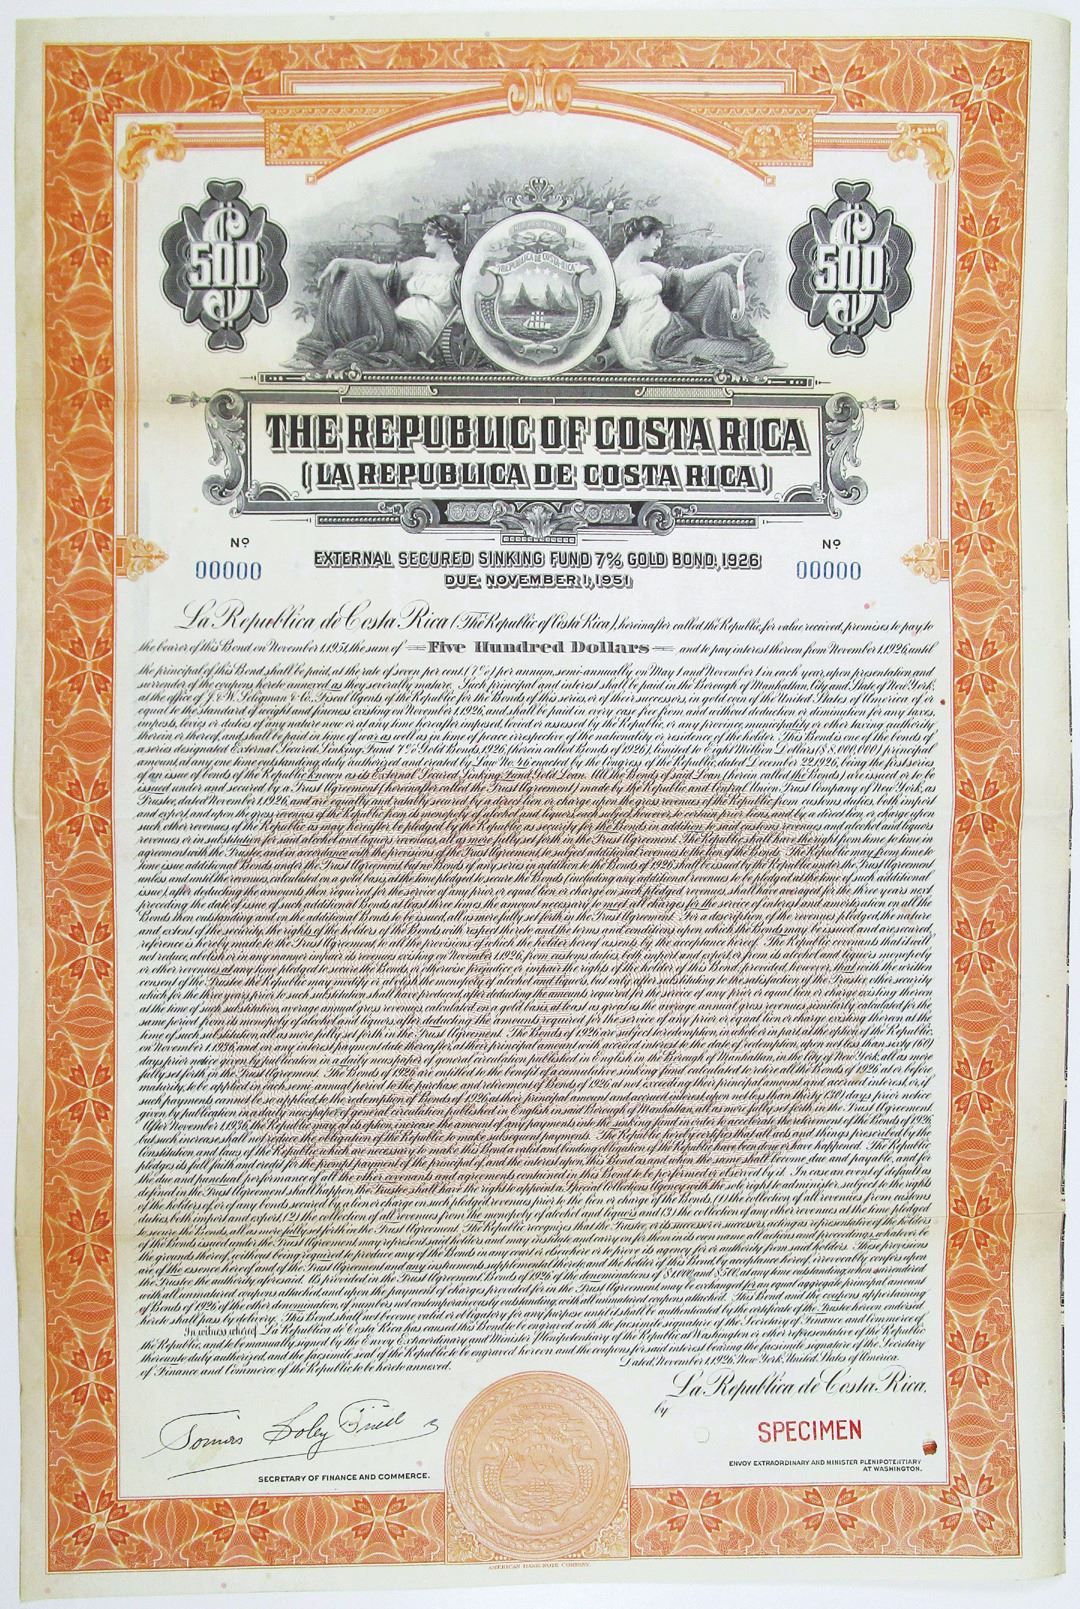 500
500
REPUBLICA DE COSTA RICA
THE REPUBLIC OF COSTA RICA
(LA REPUBLICA DE COSTA RICA)
Nº
00000
Nº
00000
EXTERNAL SECURED SINKING FUND 7% GOLD BOND, 1926
DUE NOVEMBER 1, 1951
La Republica de Costa Rica (The Republic of Costa Rica), hereinafter called the Republic, for value received, promises to pay to
the bearer of this Bond on November 1, 1951, the sum of Five Hundred Dollars and to pay interest thereon from November 1, 1926, until
the principal of this Bond shall be paid, at the rate of seven per cent. (7%) per annum, semi-annually on May 1 and November 1 in each year, upon presentation and
surrender of the coupons hereto annexed as they severally mature. Such principal and interest shall be paid in the Borough of Manhattan, City and State of New York,
at the office of J. & W. Seligman & Co., Fiscal Agents of the Republic for the Bonds of this series, or of their successors, in gold coin of the United States of America of or
equal to the standard of weight and fineness existing on November 1, 1926, and shall be paid in every case free from and without deduction or diminution for any taxes,
imposts, levies or duties of any nature now or at any time hereafter imposed, levied or assessed by the Republic, or any province, municipality or other taxing authority
therein or thereof, and shall be paid in time of war as well as in time of peace irrespective of the nationality or residence of the holder. This Bond is one of the bonds of
a series designated External Secured Sinking Fund 7% Gold Bonds, 1926, (herein called Bonds of 1926), limited to Eight Million Dollars ($8,000,000) principal
amount, at any one time outstanding, duly authorized and created by Law No. 46 enacted by the Congress of the Republic, dated December 22, 1926, being the first series
of an issue of bonds of the Republic known as its External Secured Sinking Fund Gold Loan. All the Bonds of said Loan (herein called the Bonds) are issued or to be
issued under and secured by a Trust Agreement (hereinafter called the Trust Agreement) made by the Republic and Central Union Trust Company of New York, as
Trustee, dated November 1, 1926, and are equally and ratably secured by a direct lien or charge upon the gross revenues of the Republic from customs duties, both import
and export, and upon the gross revenues of the Republic from its monopoly of alcohol and liquors, each subject, however, to certain prior liens, and by a direct lien or charge upon
such other revenues of the Republic as may hereafter be pledged by the Republic as security for the Bonds in addition to said customs revenues and alcohol and liquors
revenues or in substitution for said alcohol and liquors revenues, all as more fully set forth in the Trust Agreement. The Republic shall have the right from time to time in
agreement with the Trustee, and in accordance with the provisions of the Trust Agreement, to subject additional revenues to the lien of the Bonds. The Republic may from time to
time issue additional Bonds under the Trust Agreement. Bonds of any series in addition to the Bonds of 1926 shall be issued by the Republic under the Trust Agreement
unless and until the revenues, calculated on a gold basis, at the time pledged to secure the Bonds (including any additional revenues to be pledged at the time of such additional
issue), after deducting the amounts then required for the service of any prior or equal lien or charge on such pledged revenues, shall have averaged for the three years next
preceding the date of issue of such additional Bonds at least three times the amount necessary to meet all charges for the service of interest and amortization on all the
Bonds then outstanding and on the additional Bonds to be issued, all as more fully set forth in the Trust Agreement. For a description of the revenues pledged, the nature
and extent of the security, the rights of the holders of the Bonds with respect thereto and the terms and conditions upon which the Bonds may be issued and are secured,
reference is hereby made to the Trust Agreement, to all the provisions of which the holder hereof assents by the acceptance hereof. The Republic covenants that it will
not reduce, abolish or in any manner impair its revenues existing on November 1, 1926, from customs duties, both import and export, or from its alcohol and liquors monopoly
or other revenues at any time pledged to secure the Bonds, or otherwise prejudice or impair the rights of the holder of this Bond, provided, however, that with the written
consent of the Trustee the Republic may modify or abolish the monopoly of alcohol and liquors, but only after substituting to the satisfaction of the Trustee, other security
which for the three years prior to such substitution shall have produced, after deducting the amounts required for the service of any prior or equal lien or charge existing thereon
at the time of such substitution, average annual gross revenues, calculated on a gold basis, at least as great as the average annual gross revenues, similarly calculated for the
same period from its monopoly of alcohol and liquors after deducting the amounts required for the service of any prior or equal lien or charge existing thereon at the
time of such substitution, all as more fully set forth in the Trust Agreement. The Bonds of 1926 are subject to redemption, in whole or in part, at the option of the Republic,
on November 1, 1936, and on any interest payment date thereafter, at their principal amount with accrued interest to the date of redemption, upon not less than sixty (60)
days prior notice given by publication in a daily newspaper of general circulation published in English in the Borough of Manhattan, in the City of New York, all as more
fully set forth in the Trust Agreement. The Bonds of 1926 are entitled to the benefit of a cumulative sinking fund calculated to retire all the Bonds of 1926 at or before
maturity, to be applied in each semi-annual period to the purchase and retirement of Bonds of 1926 at not exceeding their principal amount and accrued interest, or, if
such payments cannot be so applied, to the redemption of Bonds of 1926 at their principal amount and accrued interest, upon not less than thirty (30) days prior notice
given by publication in a daily newspaper of general circulation published in English in said Borough of Manhattan, all as more fully set forth in the Trust Agreement.
After November 1, 1936, the Republic may, at its option, increase the amount of any payments into the sinking fund in order to accelerate the retirement of the Bonds of 1926,
but such increase shall not reduce the obligation of the Republic to make subsequent payments. The Republic hereby certifies that all acts and things prescribed by the
Constitution and laws of the Republic which are necessary to make this Bond a valid and binding obligation of the Republic have been done or have happened. The Republic
pledges its full faith and credit for the prompt payment of the principal of, and the interest upon, this Bond as and when the same shall become due and payable, and for
the due and punctual performance of all the other covenants and agreements contained in this Bond to be performed or observed by it. In case an event of default as
defined in the Trust Agreement shall happen, the Trustee shall have the right to appoint a Special Collections Agency with the sole right to administer, subject to the rights
of the holders of, or of any bonds secured by a lien or charge on such pledged revenues prior to the lien or charge of the Bonds, (1) the collection of all revenues from customs
duties, both import and export, (2) the collection of all revenues from the monopoly of alcohol and liquors, and (3) the collection of any other revenues at the time pledged
to secure the Bonds, all as more fully set forth in the Trust Agreement. The Republic recognizes that the Trustee, or its successor or successors, acting as representative of the holders
of the Bonds issued under the Trust Agreement, may represent said holders and may institute and carry on for them in its own name all actions and proceedings, whatever be
the grounds thereof, without being required to produce any of the Bonds in any court or elsewhere or to prove its agency for or authority from said holders. These provisions
are of the essence hereof and of the Trust Agreement and any instruments supplemental thereto and the holder of this Bond, by acceptance hereof, irrevocably confers upon
the Trustee the authority aforesaid. As provided in the Trust Agreement Bonds of 1926 of the denominations of $1,000 and $500, at any time outstanding, when surrendered
with all unmatured coupons attached, and upon the payment of charges provided for in the Trust Agreement may be exchanged for an equal aggregate principal amount
of Bonds of 1926 of the other denomination, of numbers not contemporaneously outstanding, with all unmatured coupons attached. This Bond and the coupons appertaining
hereto shall pass by delivery. This Bond shall not become valid or obligatory for any purpose until it shall be authenticated by the certificate of the Trustee hereon endorsed.
In witness whereof La Republica de Costa Rica has caused this Bond to be engraved with the facsimile signature of the Secretary of Finance and Commerce of
the Republic, and to be manually signed by the Envoy Extraordinary and Minister Plenipotentiary of the Republic at Washington or other representative of the Republic
thereunto duly authorized, and the facsimile seal of the Republic to be engraved hereon and the coupons for said interest bearing the facsimile signature of the Secretary
of Finance and Commerce of the Republic to be hereto annexed.
Dated, November 1, 1926, New York, United States of America.
La Republica de Costa Rica,
by
SPECIMEN
Tomás Soley Güell
SECRETARY OF FINANCE AND COMMERCE.
ENVOY EXTRAORDINARY AND MINISTER PLENIPOTENTIARY
AT WASHINGTON.
AMERICAN BANK NOTE COMPANY.